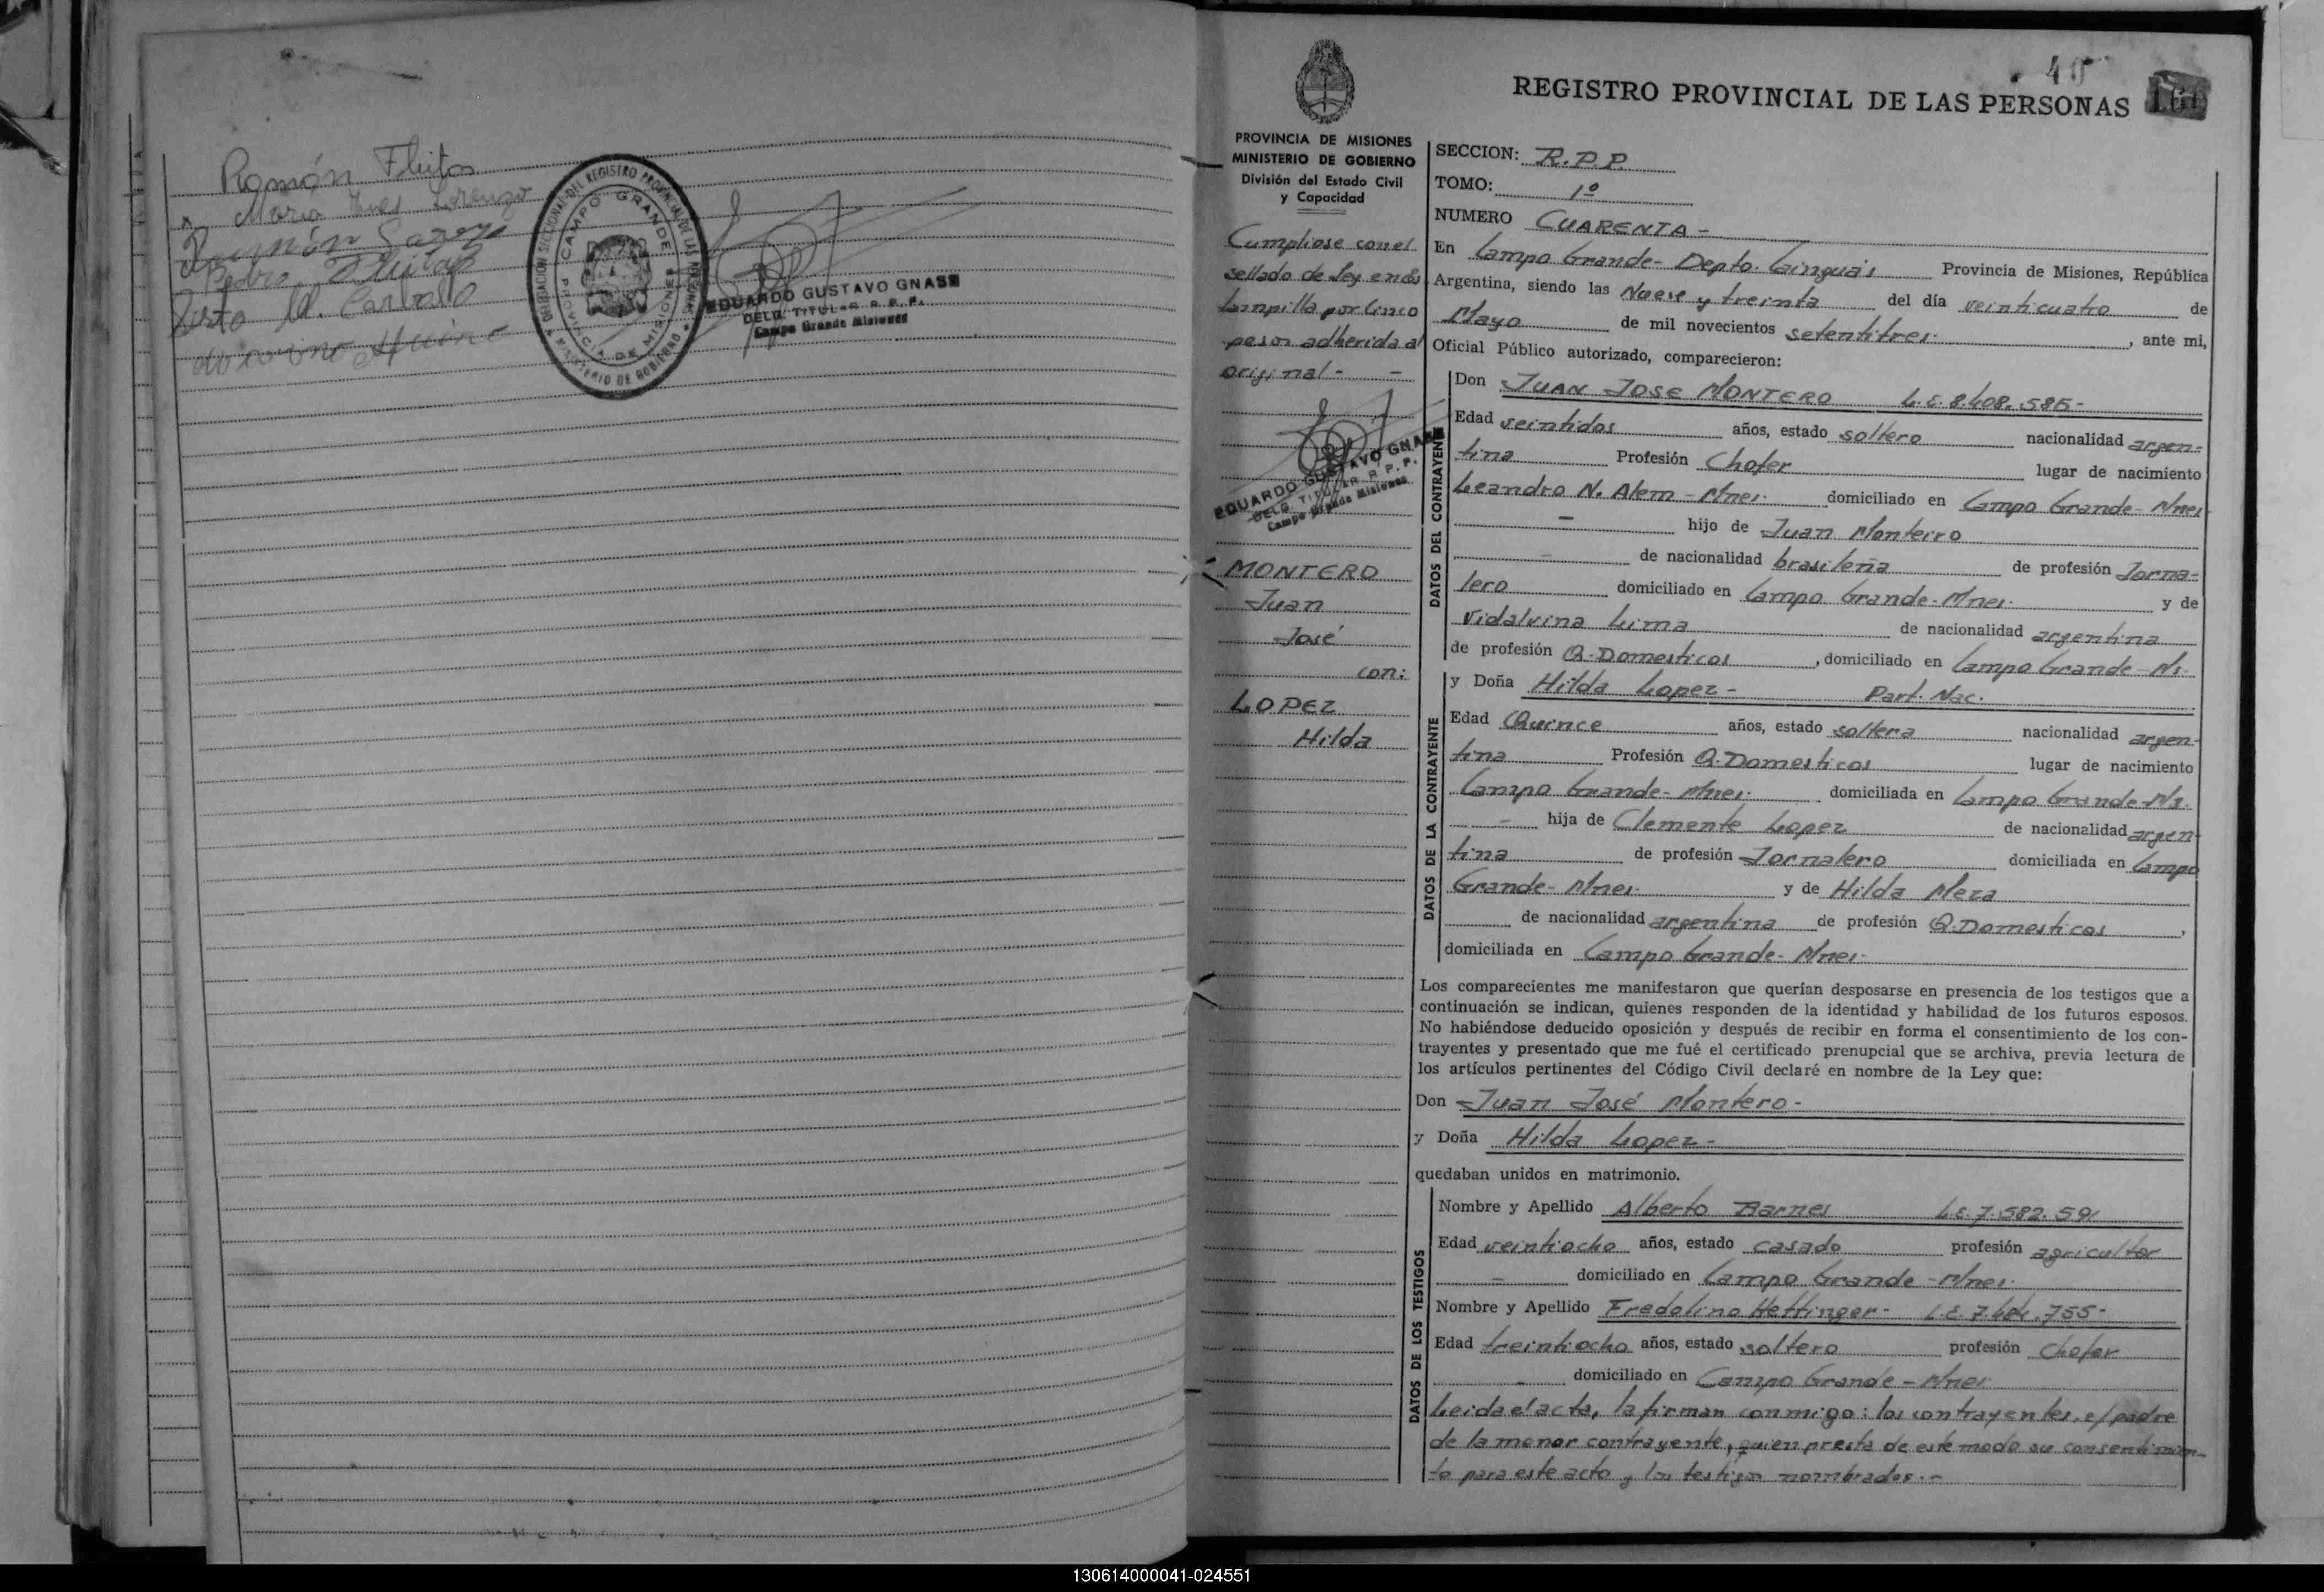 Ramón Fleitas
María Ines Lorenzo
Ramón
Pedro Fleitas
Justo Carballo
DELEGACION SECCIONAL DEL REGISTRO PROVINCIAL DE LAS PERSONAS
CAMPO GRANDE
PROVINCIA DE MISIONES
MINISTERIO DE GOBIERNO
EDUARDO GUSTAVO GNASS
DELG. TITULAR R. P. P.
Campo Grande Misiones
40
REGISTRO PROVINCIAL DE LAS PERSONAS
PROVINCIA DE MISIONES
MINISTERIO DE GOBIERNO
División del Estado Civil
y Capacidad
Cumpliose con el
sellado de ley en es
tampilla por Cinco
pesos adherida al
original - -
EDUARDO GUSTAVO GNASS
DELG. TITULAR R. P. P.
Campo Grande Misiones
MONTERO
Juan
José
con:
LOPEZ
Hilda
SECCION: R.P.P.
TOMO: 1º
NUMERO CUARENTA -
En Campo Grande - Depto. Cainguás Provincia de Misiones, República
Argentina, siendo las Nueve y treinta del día veinticuatro de
Mayo de mil novecientos setentitres , ante mi,
Oficial Público autorizado, comparecieron:
DATOS DEL CONTRAYENTE
Don JUAN JOSE MONTERO L.E. 8.408.585-
Edad veintidos años, estado soltero nacionalidad argen-
tina Profesión Chofer lugar de nacimiento
Leandro N. Alem - Mnes. domiciliado en Campo Grande - Mnes
- hijo de Juan Monteiro
- de nacionalidad brasileña de profesión Jorna-
lero domiciliado en Campo Grande - Mnes. y de
Vidalvina Lima de nacionalidad argentina
de profesión Q. Domesticos , domiciliado en Campo Grande - Ms.
DATOS DE LA CONTRAYENTE
y Doña Hilda Lopez - Part. Nac.
Edad Quince años, estado soltera nacionalidad argen-
tina Profesión Q. Domesticos lugar de nacimiento
Campo Grande - Mnes. domiciliada en Campo Grande - Ms.
- hija de Clemente Lopez de nacionalidad argen-
tina de profesión Jornalero domiciliada en Campo
Grande - Mnes. y de Hilda Meza
de nacionalidad argentina de profesión Q. Domesticos ,
domiciliada en Campo Grande - Mnes.
Los comparecientes me manifestaron que querían desposarse en presencia de los testigos que a
continuación se indican, quienes responden de la identidad y habilidad de los futuros esposos.
No habiéndose deducido oposición y después de recibir en forma el consentimiento de los con-
trayentes y presentado que me fué el certificado prenupcial que se archiva, previa lectura de
los artículos pertinentes del Código Civil declaré en nombre de la Ley que:
Don Juan José Montero -
y Doña Hilda Lopez -
quedaban unidos en matrimonio.
DATOS DE LOS TESTIGOS
Nombre y Apellido Alberto Barnes L.E. 7.582.591
Edad veintiocho años, estado casado profesión agricultor
- domiciliado en Campo Grande - Mnes.
Nombre y Apellido Fredolino Hettinger - L.E.
Edad treintiocho años, estado soltero profesión Chofer
- domiciliado en Campo Grande - Mnes
Leida el acta, la firman conmigo: los contrayentes, el padre
de la menor contrayente, quien presta de este modo su consentimien-
to para este acto y los testigos nombrados. -
130614000041-024551